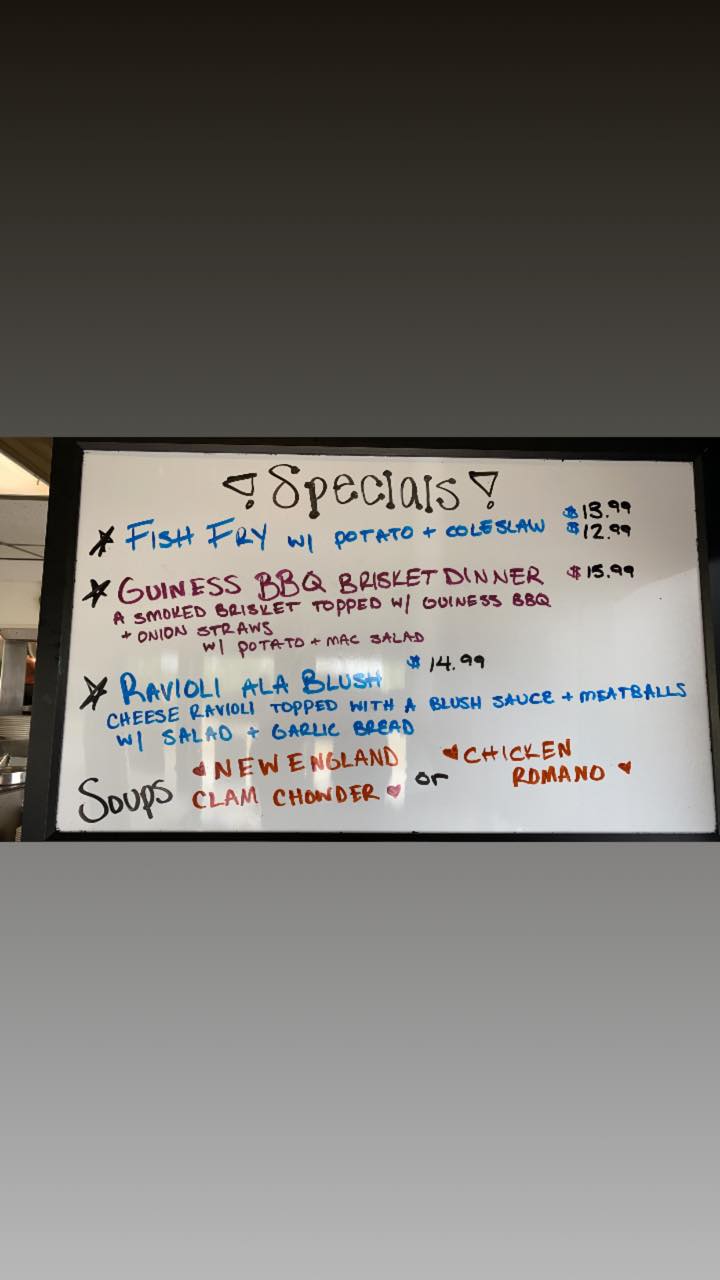 ! Specials !
$13.99
★ FISH FRY W/ POTATO + COLESLAW $12.99
★ GUINESS BBQ BRISKET DINNER $15.99
A SMOKED BRISKET TOPPED W/ GUINESS BBQ
+ ONION STRAWS
W/ POTATO + MAC SALAD
$14.99
★ RAVIOLI ALA BLUSH
CHEESE RAVIOLI TOPPED WITH A BLUSH SAUCE + MEATBALLS
W/ SALAD + GARLIC BREAD
Soups NEW ENGLAND CLAM CHOWDER or CHICKEN ROMANO